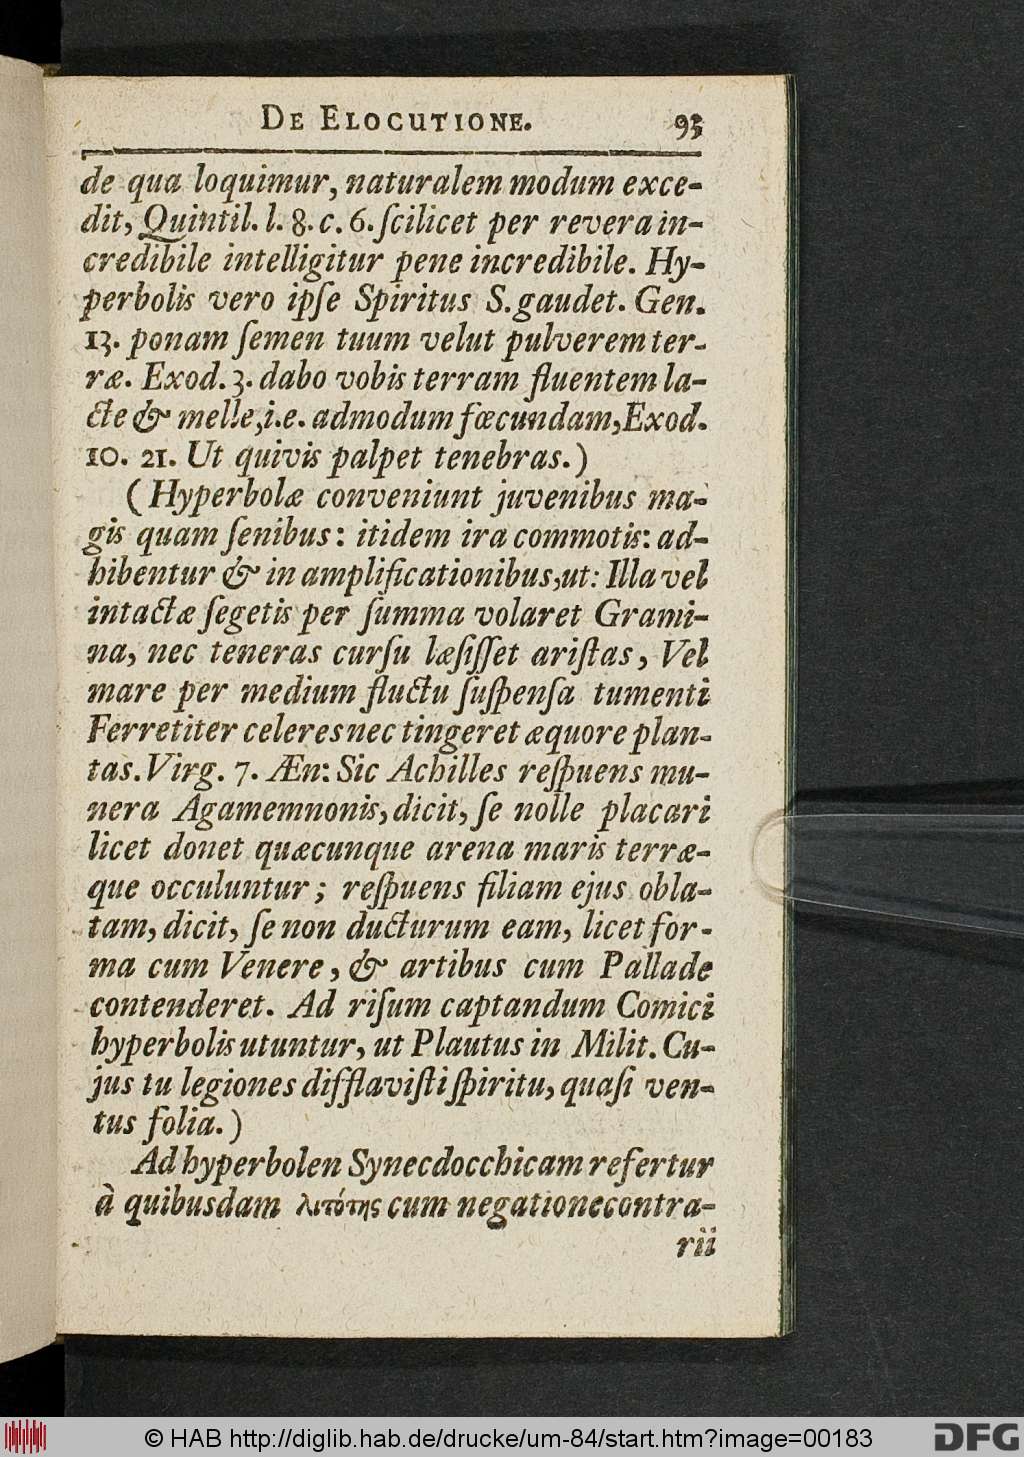 DE ELOCUTIONE. 93
de qua loquimur, naturalem modum exce-
dit, Quintil. l. 8. c. 6. ſcilicet per revera in-
credibile intelligitur pene incredibile. Hy-
perbolis vero ipſe Spiritus S. gaudet. Gen.
13. ponam ſemen tuum velut pulverem ter-
ræ. Exod. 3. dabo vobis terram fluentem la-
cte & melle, i.e. admodum fœcundam, Exod.
10. 21. Ut quivis palpet tenebras.)
(Hyperbolæ conveniunt juvenibus ma-
gis quam ſenibus: itidem ira commotis: ad-
hibentur & in amplificationibus, ut: Illa vel
intactæ ſegetis per ſumma volaret Grami-
na, nec teneras curſu læſiſſet ariſtas, Vel
mare per medium fluctu ſuſpenſa tumenti
Ferret iter celeres nec tingeret æquore plan-
tas. Virg. 7. Æn: Sic Achilles reſpuens mu-
nera Agamemnonis, dicit, ſe nolle placari
licet donet quæcunque arena maris terræ-
que occuluntur; reſpuens filiam ejus obla-
tam, dicit, ſe non ducturum eam, licet for-
ma cum Venere, & artibus cum Pallade
contenderet. Ad riſum captandum Comici
hyperbolis utuntur, ut Plautus in Milit. Cu-
jus tu legiones difflaviſti ſpiritu, quaſi ven-
tus folia.)
Ad hyperbolen Synecdocchicam refertur
à quibusdam λιτότης cum negatione contra-
rii
© HAB http://diglib.hab.de/drucke/um-84/start.htm?image=00183
DFG